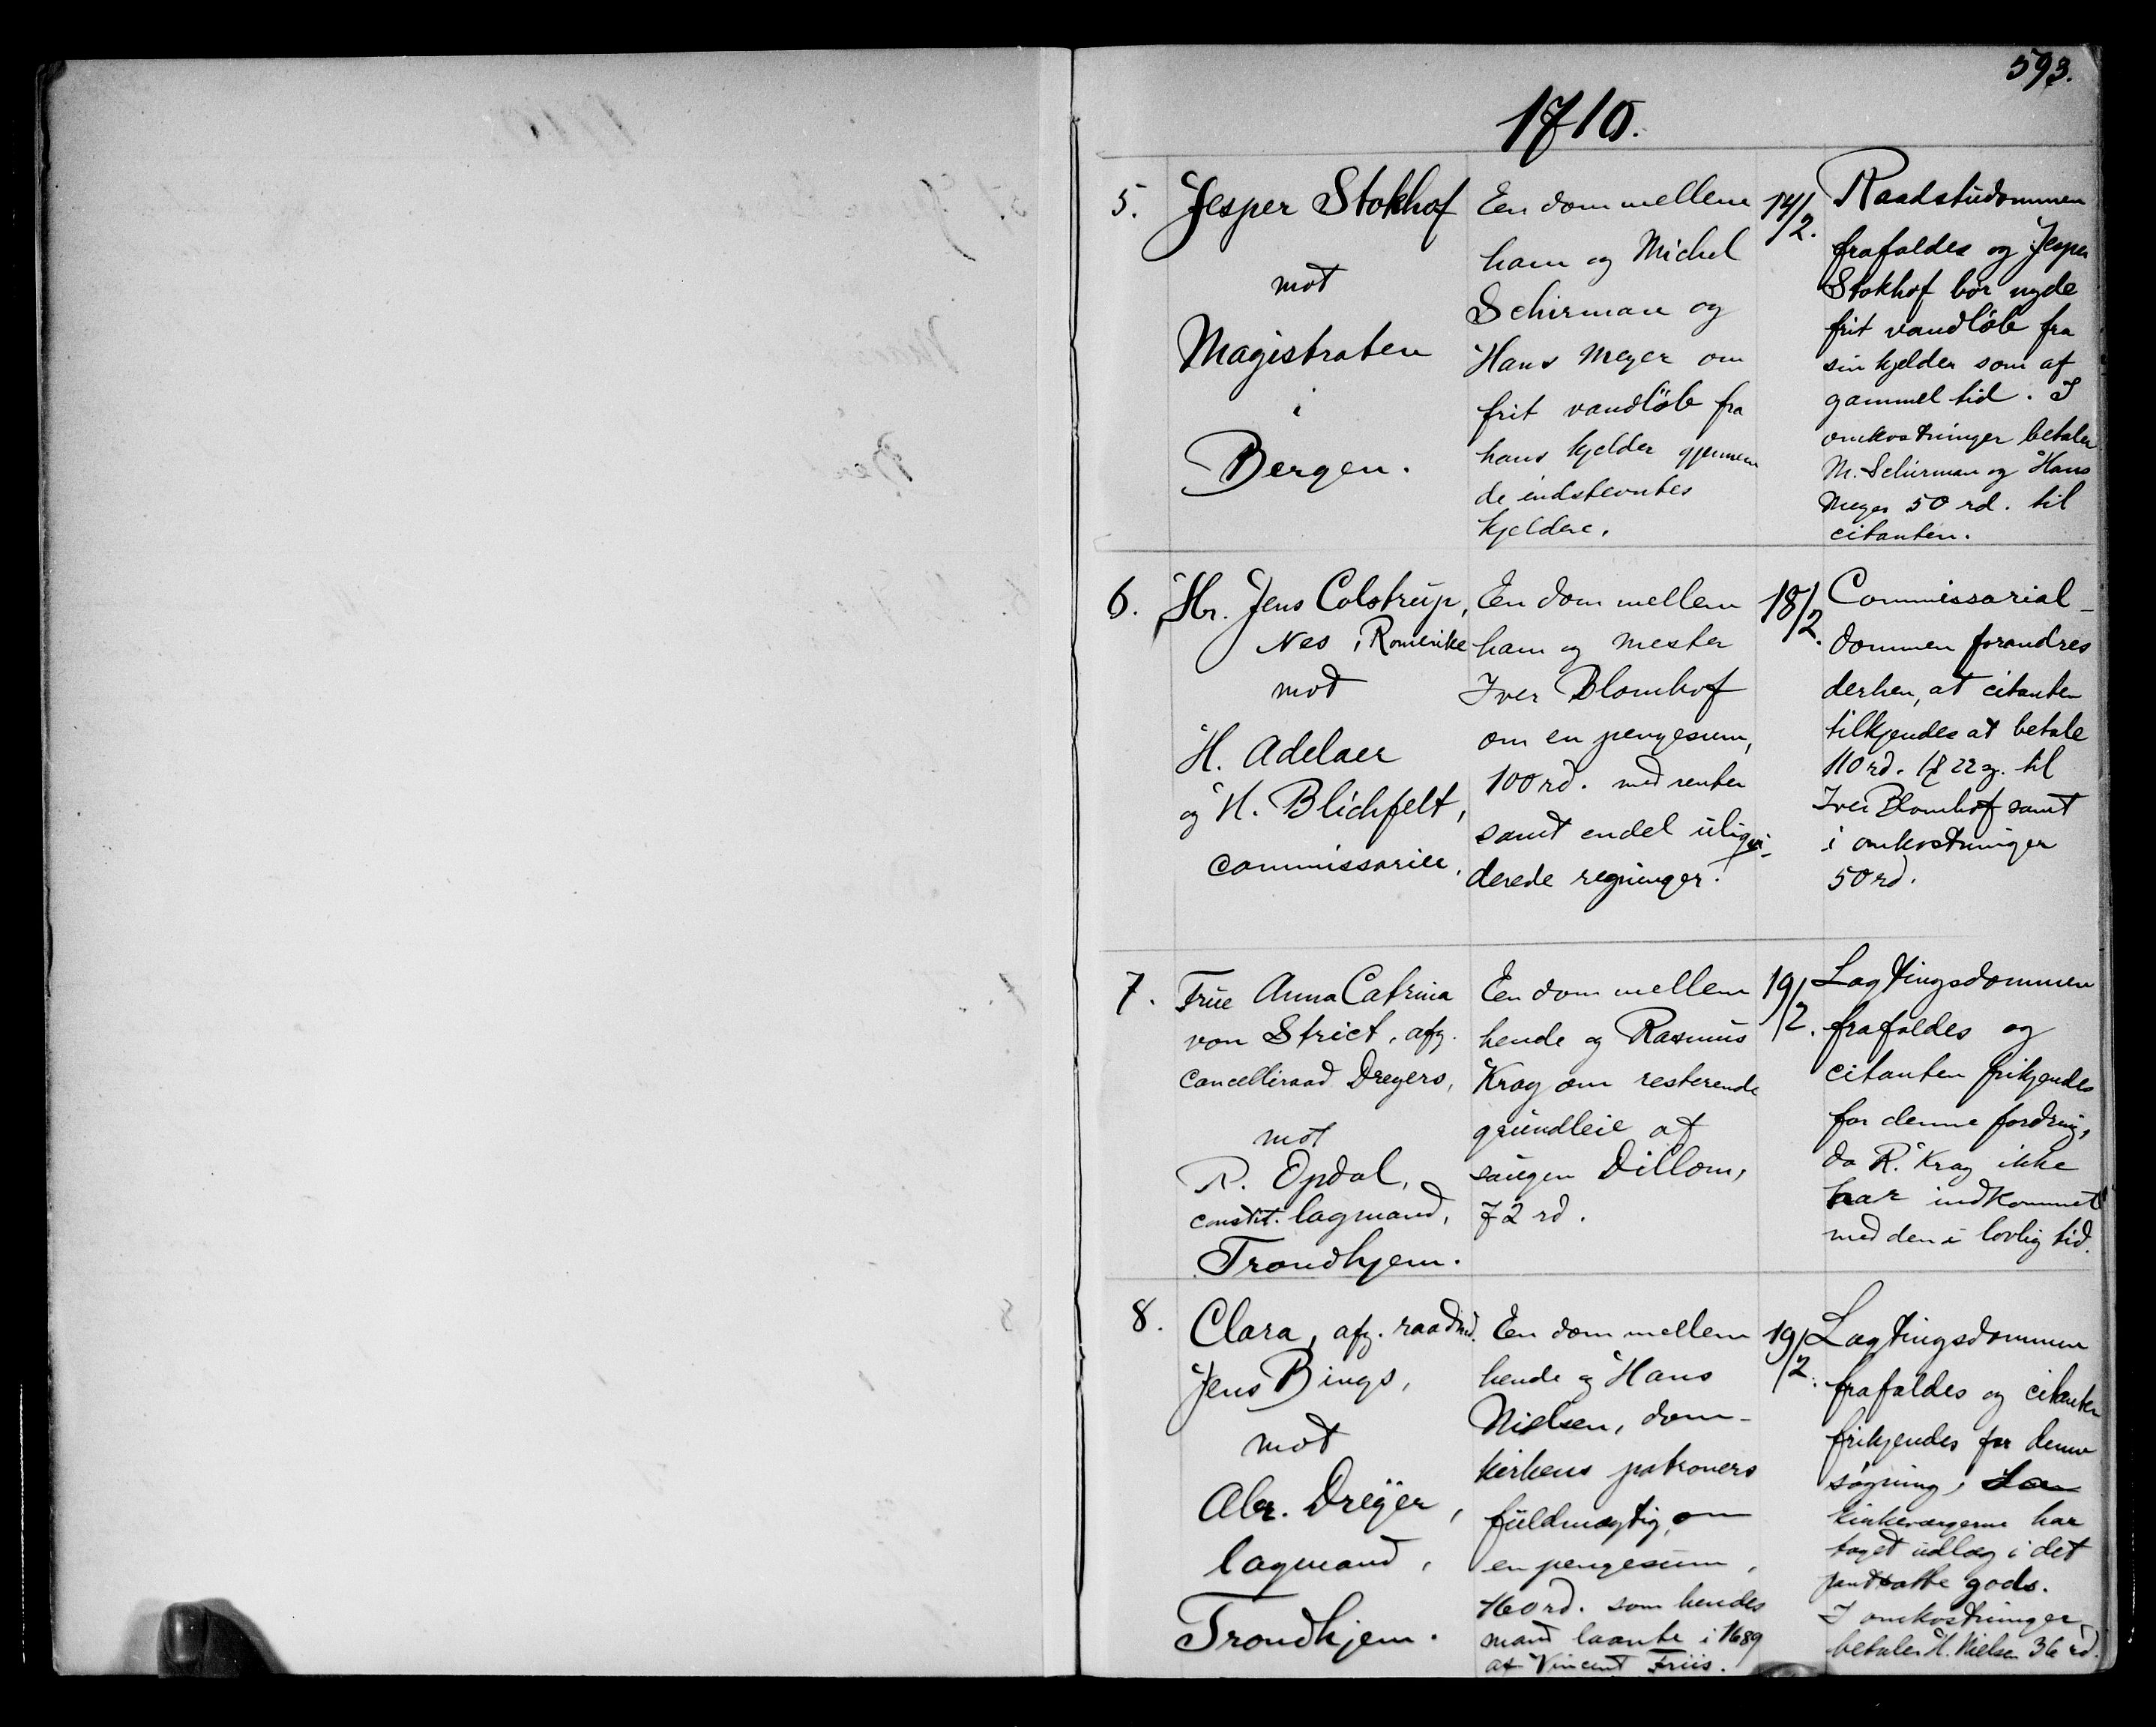 593.
1710.
5.
Jesper Stokhof
mot
Magistraten
i
Bergen.
En dom mellem
ham og Michel
Schirman og
Hans Meyer om
frit vandlöb fra
hans kjelder gjennem
de indstevntes
kjeldere.
14/2.
Raadstudommen
frafaldes og Jesper
Stokhof bör nyde
frit vandlöb fra
sin kjelder som af
gammel tid. I
omkostninger betaler
M. Schirman og Hans
Meyer 50 rd. til
citanten.
6.
Hr. Jens Colstrup,
Nes i Romerike
mot
H. Adelaer
og H. Blichfelt,
commissarier.
En dom mellem
ham og mester
Iver Blomhof
om en pengesum,
100 rd. med renter
samt endel uliqvi-
derede regninger.
18/2.
Commissorial-
dommen forandres
derhen, at citanten
tilkjendes at betale
110 rd. 22 til
Iver Blomhof samt
i omkostninger
50 rd.
7.
Frue Anna Catrina
von Strict, afg.
cancelliraad Dreyers,
mot
R. Opdal,
constit. lagmand,
Trondhjem.
En dom mellem
hende og Rasmus
Krag om resterende
grundleie af
saugen Dillom,
72 rd.
19/2.
Lagtingsdommen
frafaldes og
citanten frikjendes
for denne fordring,
da R. Krag ikke
har indkommet
med den i lovlig tid.
8.
Clara, afg. raadmd.
Jens Bings,
mot
Abr. Dreÿer,
lagmand,
Trondhjem.
En dom mellem
hende og Hans
Nielsen, dom-
kirkens patroners
fuldmægtig, om
en pengesum,
160 rd. som hendes
mand laante i 1689
af Vincent Friis.
19/2.
Lagtingsdommen
frafaldes og citanten
frikjendes for denne
sögning,
kirkevergerne har
taget udlæg i det
pantsatte gods.
I omkostninger
betaler H. Nielsen 36 rd.